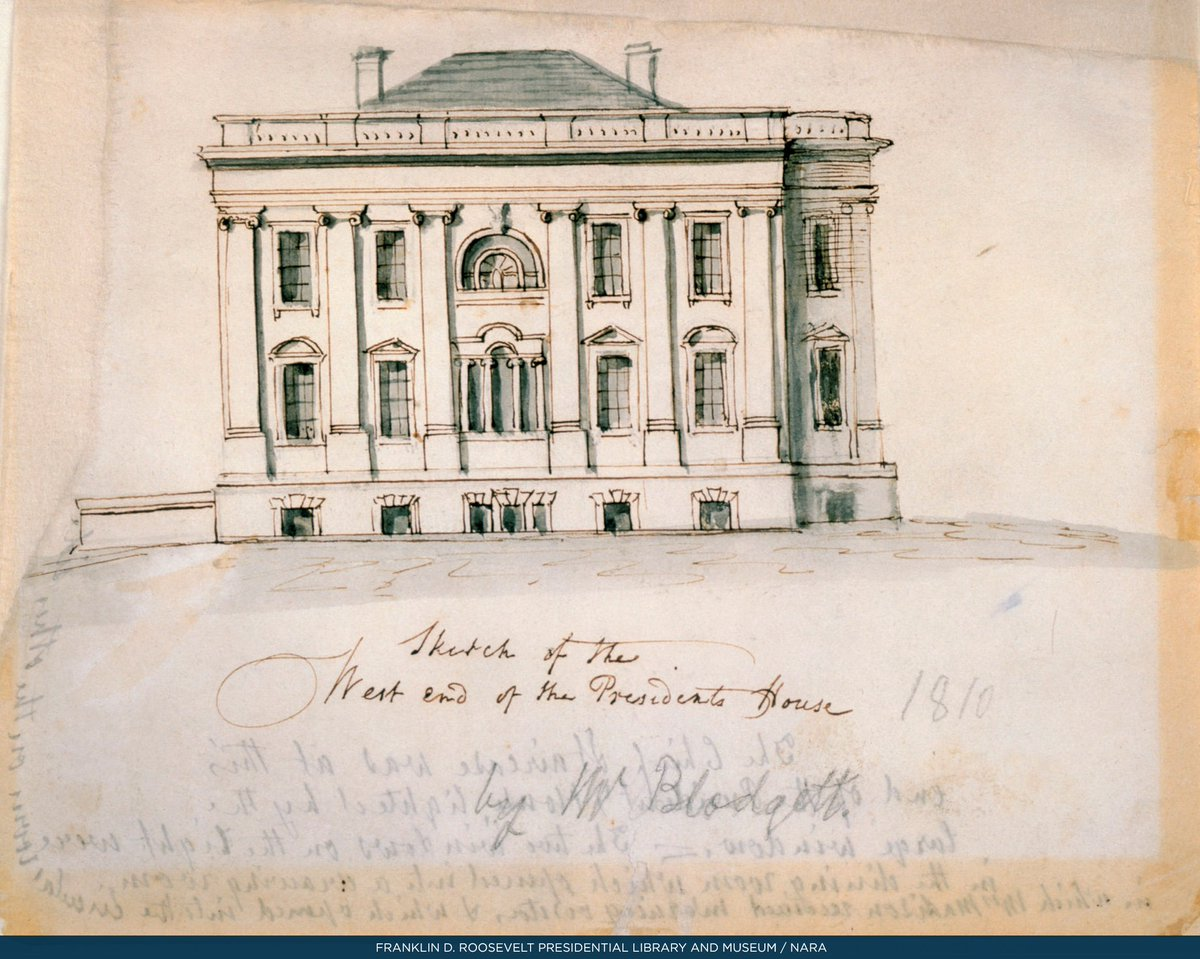 Sketch of the
West end of the Presidents House
1810
by Mr Blodgett.
The Chief Staircase was at this
end of the House, lighted by the
large window. — The two windows on the right were
the dining room which opened into a drawing room,
in which Mrs Madison received morning visitors, & which opened into the
room on the other side
FRANKLIN D. ROOSEVELT PRESIDENTIAL LIBRARY AND MUSEUM / NARA